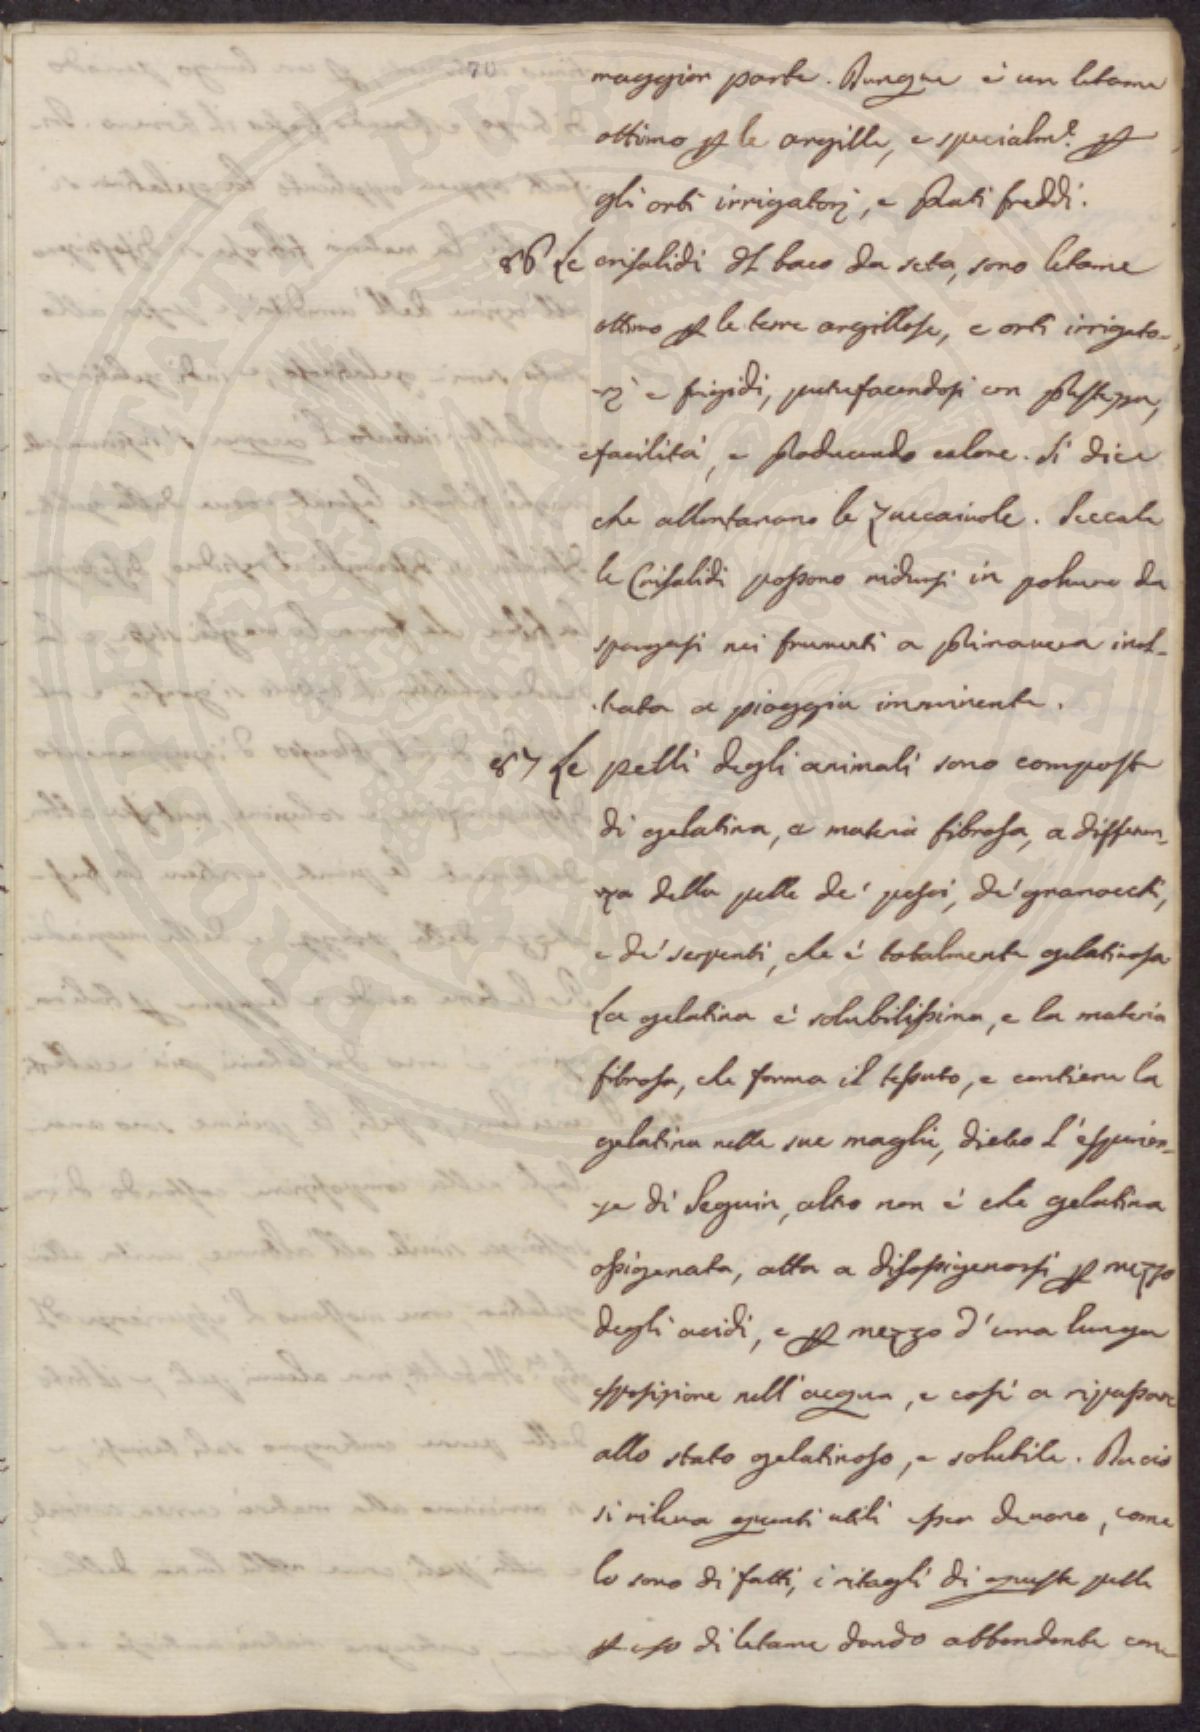 70
maggior parte. Dunque é un letame
ottimo p le argille, e specialm.e p
gli orti irrigatorj, e Prati freddi.
86 Le crisalidi dl baco da seta, sono letame
ottimo p le terre argillose, e orti irrigato-
rj e frigidi, putrefacendosi con Prestezza,
e facilitá, e Producendo calore. Si dice
che allontanano le Zuccaiuole. Seccate
le Crisalidi possono ridursi in polvere da
spargersi nei frumenti a Primavera inol-
trata a pioggia imminente.
87 Le pelli degli animali sono composte
di gelatina, e materia fibrosa, a differen-
za della pelle de' pesci, de' granocchi,
e de' serpenti, che é totalmente gelatinosa
La gelatina é solubilissima, e la materia
fibrosa, che forma il tessuto, e contiene la
gelatina nelle sue maglie, dietro l'esperien-
ze di Seguin, altro non é che gelatina
ossigenata, atta a disossigenarsi p mezzo
degli acidi, e p mezzo d'una lunga
esposizione nell'acqua, e cosí a ripassare
allo stato gelatinoso, e solubile. Da ció
si rileva quanti utili esser devono, come
lo sono di fatti, i ritagli di queste pelle
p uso di letame dando abbondante con-